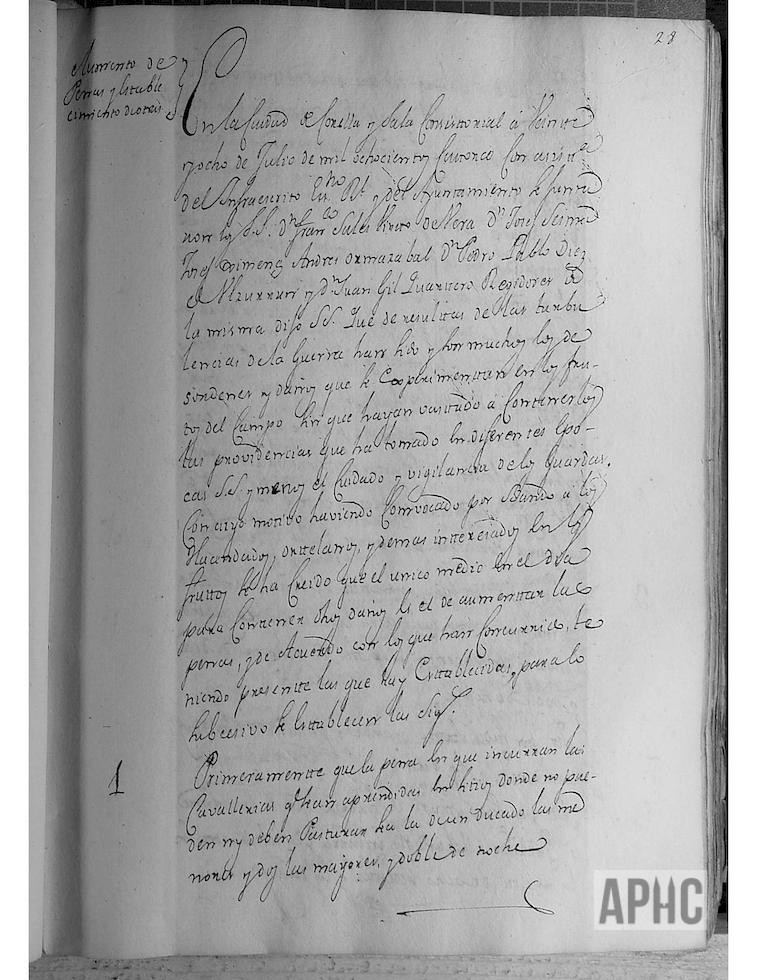 28
Aumento de
Penas y estable
cimiento de otras
En la Ciudad de Corella y Sala Consistorial a Veinte
y ocho de Julio de mil ochocientos Catorce Con asist.ª
del Infraescrito Es.no R.l y del Ayuntamiento se junta
ron los S.S. D.n Fran.co Sales
D.n Josef
Josef Ximenez Andres Ormazabal D.n Pedro Pablo Diez
de Ulzurrun y D.n Juan Gil Regidores de
la misma dijo S.S. Que de resultas de Las turbu
lencias de la Guerra han sido y son muchos los de
sordenes y daños que se Coxperimentan en los fru-
tos del Campo sin que hayan vastado a Contenerlos
las providencias que ha tomado en diferentes Epo-
cas S.S. y menos el Cuidado y vigilancia de los Guardas.
Con cuyo motivo haviendo Convocado por Bando a los
Hacendados, ortelanos, y demas interesados en los
frutos se ha Creido que el unico medio en el dia
para Contener dhos daños es el de aumentar las
penas, y de Acuerdo con los que han Concurrido, te
niendo presente las que hay Establecidas, para lo
subcesivo se establecen las Sig.s
1
Primeramente que la pena en que incurran las
Cavallerias q.e sean aprendidas en sitios donde no pue-
den ny deben Pasturar sea la de un Ducado las me
nores y dos las mayores, y doble de noche
APHC